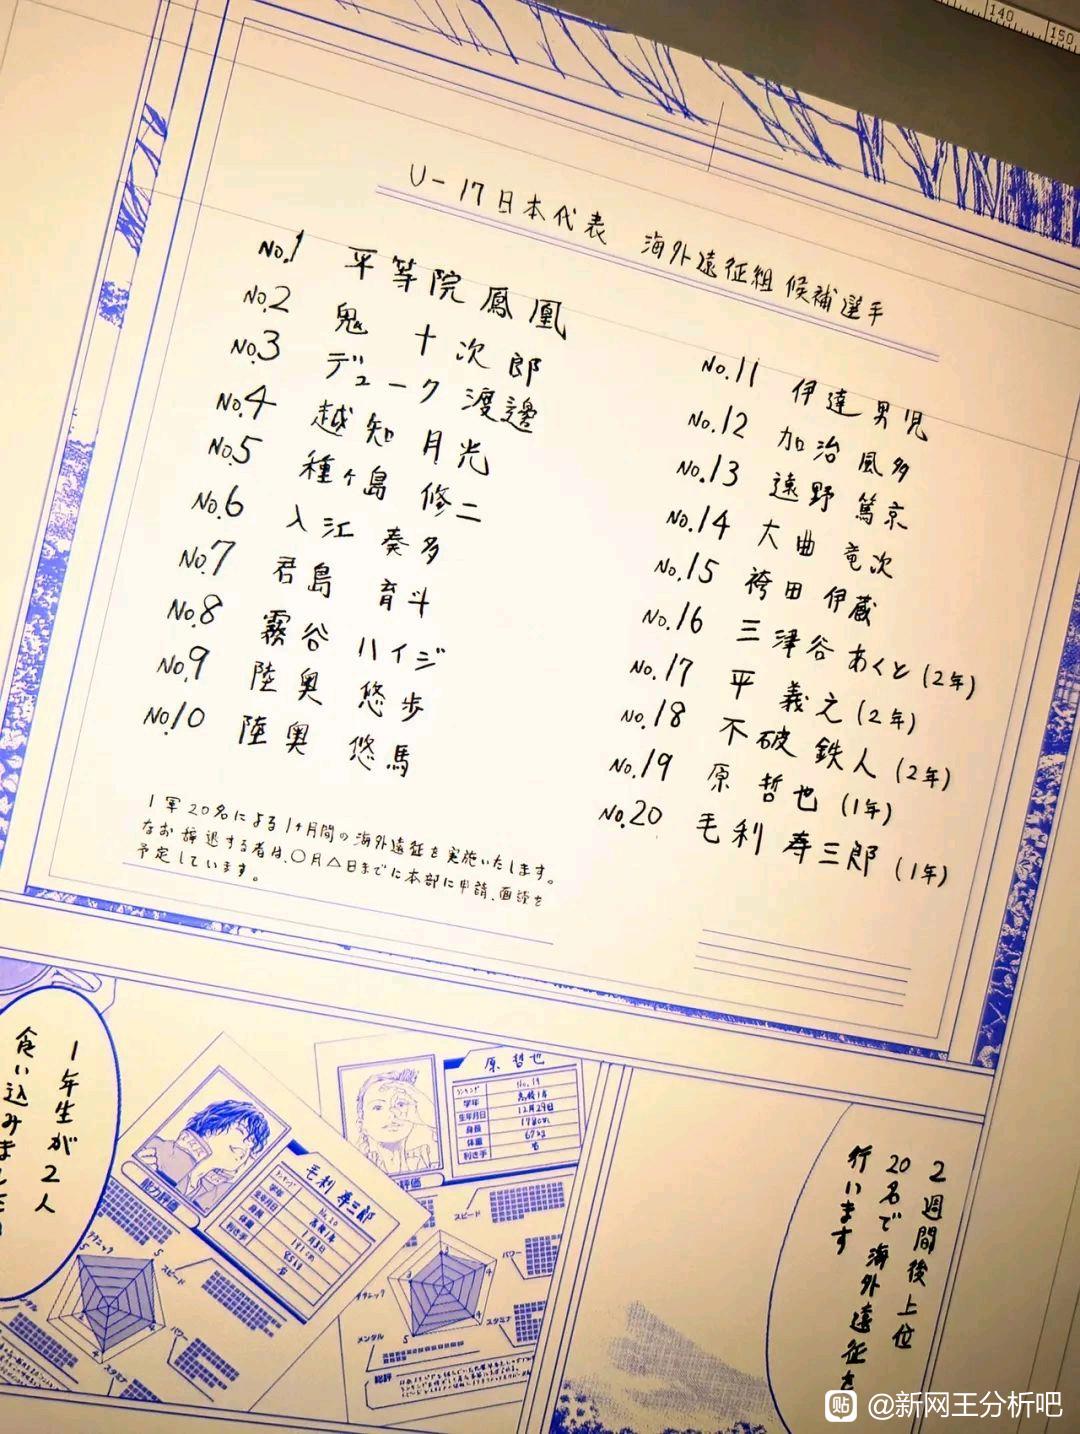 140
150
U-17日本代表 海外遠征組候補選手
No.1 平等院鳳凰
No.2 鬼 十次郎
No.3 デューク渡邊
No.4 越知月光
No.5 種ヶ島 修二
No.6 入江 奏多
No.7 君島 育斗
No.8 霧谷 ハイジ
No.9 陸奥 悠歩
No.10 陸奥 悠馬
No.11 伊達男児
No.12 加治風多
No.13 遠野 篤京
No.14 大曲 竜次
No.15 袴田 伊蔵
No.16 三津谷 あくと(2年)
No.17 平 義之(2年)
No.18 不破 鉄人(2年)
No.19 原 哲也(1年)
No.20 毛利 寿三郎(1年)
1軍20名による1ヶ月間の海外遠征を実施いたします。
なお辞退する者は、○月△日までに本部に申請、面談を
予定しています。
1年生が2人
食い込みました
原 哲也
ランキング No.19
学年 高校1年
生年月日 12月29日
身長 178cm
体重 67kg
利き手 右
毛利 寿三郎
ランキング No.20
学年 高校1年
生年月日
身長
体重
利き手
能力評価
評価
テクニック
スピード
パワー
スタミナ
メンタル
スピード
パワー
スタミナ
メンタル
テクニック
総評
2週間後上位
20名で海外遠征を
行います
貼 @新网王分析吧